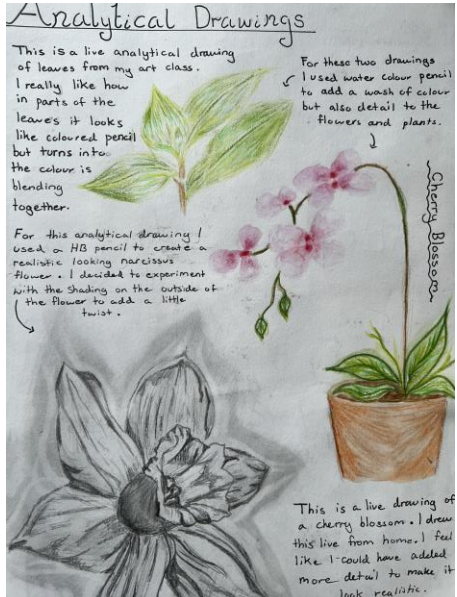 Analytical Drawings
This is a live analytical drawing
of leaves from my art class.
I really like how
in parts of the
leaves it looks
like coloured pencil
but turns into
the colour is
blending
together.
For these two drawings
I used water colour pencil
to add a wash of colour
but also detail to the
flowers and plants.
Cherry Blossom
For this analytical drawing I
used a HB pencil to create a
realistic looking narcissus
flower. I decided to experiment
with the shading on the outside of
the flower to add a little
twist.
This is a live drawing of
a cherry blossom. I drew
this live from home. I feel
like I could have added
more detail to make it
look realistic.